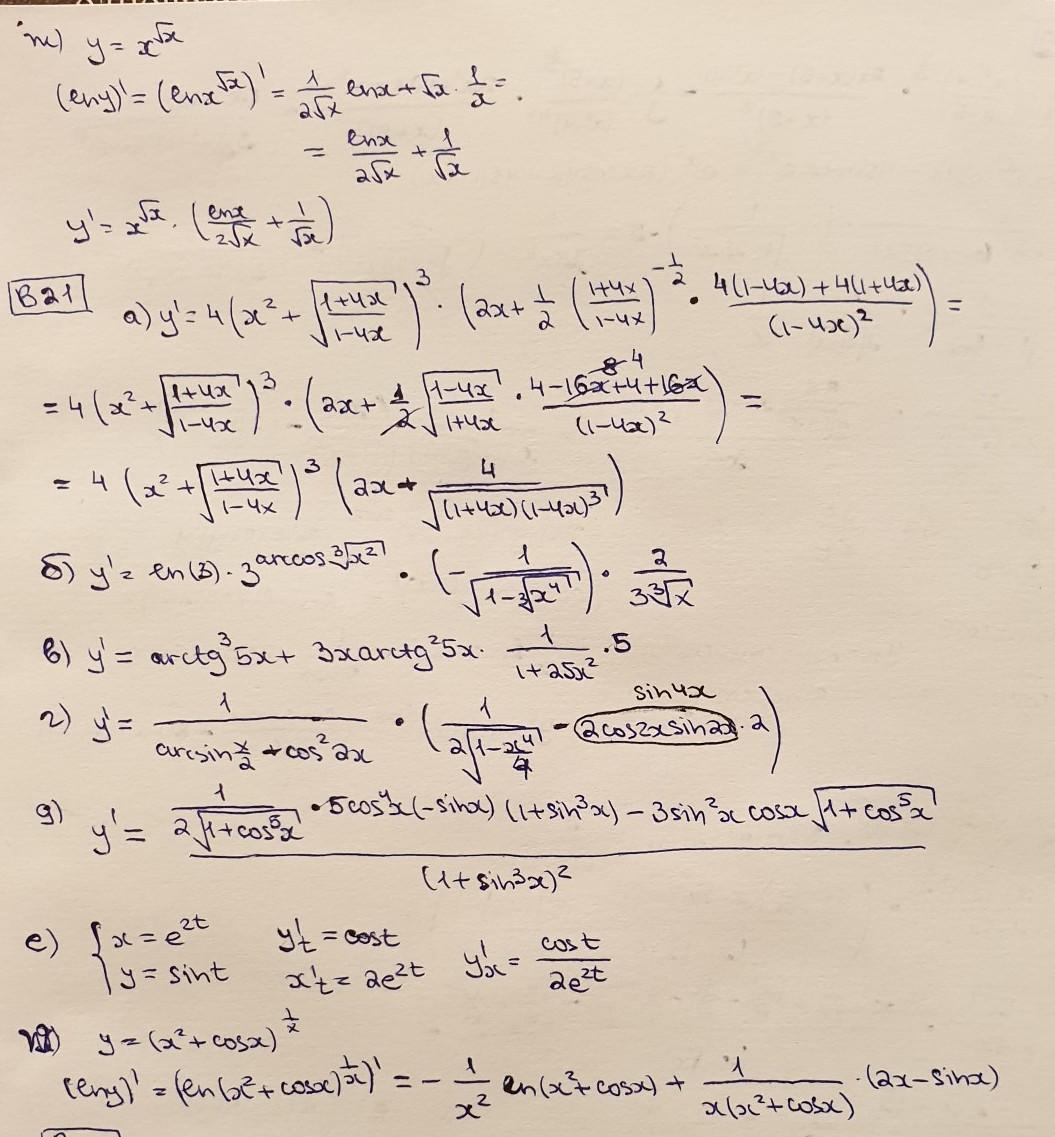 ж) y = x^√x
(ln y)' = (ln x^√x)' = 1/(2√x) ln x + √x · 1/x =
= ln x/(2√x) + 1/√x
y' = x^√x · (ln x/(2√x) + 1/√x)
В21 а) y' = 4(x² + √((1+4x)/(1-4x)))³ · (2x + 1/2 ((1+4x)/(1-4x))^(-1/2) · (4(1-4x) + 4(1+4x))/(1-4x)²) =
= 4(x² + √((1+4x)/(1-4x)))³ · (2x + 1/2 √((1-4x)/(1+4x)) · (4-16x+4+16x)/(1-4x)²) =
= 4(x² + √((1+4x)/(1-4x)))³ (2x + 4/√((1+4x)(1-4x)³))
б) y' = ln(3) · 3^(arccos ∛(x²)) · (- 1/√(1-∛(x⁴))) · 2/(3∛x)
в) y' = arctg³5x + 3x arctg²5x · 1/(1+25x²) · 5
sin4x
г) y' = 1/(arcsin x/2 + cos²2x) · (1/(2√(1-x²/4)) - 2cos2x sin2x · 2)
д) y' = (1/(2√(1+cos⁵x)) · 5cos⁴x(-sinx) (1+sin³x) - 3sin²x cosx √(1+cos⁵x))/(1+sin³x)²
е) { x = e^(2t) y't = cost
y = sint x't = 2e^(2t) y'x = cost/(2e^(2t))
ж) y = (x² + cosx)^(1/x)
(ln y)' = (ln(x² + cosx)^(1/x))' = - 1/x² ln(x² + cosx) + 1/(x(x² + cosx)) · (2x - sinx)